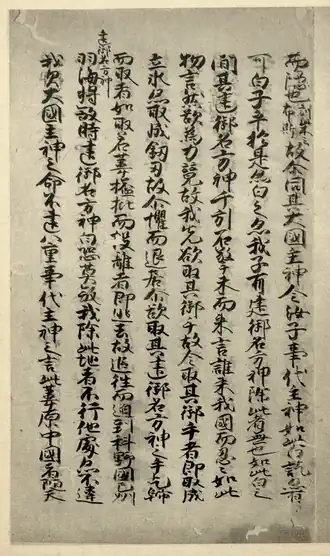 而隠也訓柴云布斯故尒問其大國主神今汝子事代主神如此白訖亦有
可白子乎於是亦白之亦我子有建御名方神除此者無也如此白之
間其建御名方神千引石敬手末而来言誰来我國而忍々如此
物言然欲為力競故我先欲取其御手故令取其御手者即取成
立氷亦取成釼刃故尒懼而退居尒欲取其建御名方神之手乞歸
建御名方神
而取者如取若葦搤批而投離者即迯去故追往而迫到科野國之州
羽海将敬時建御名方神白恐莫敬我除此地者不行他處亦不違
我父大國主神之命不違八重事代主神之言此葦原中國者随天